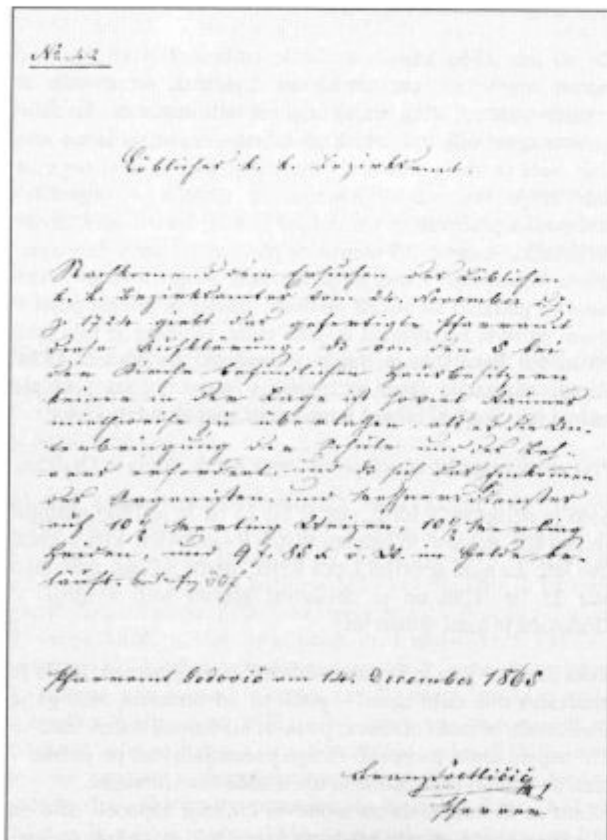 No 42
Löbliches k. k. Bezirksamt
Nachkommend dem Ersuchen des Löblichen
k. k. Bezirksamtes vom 24. November d. J.
Z 1724 giebt das gefertigte Pfarramt
daß von den 8 bei
der Kirche befindlichen Hausbesitzern
keiner in der Lage ist soviel Raum
zu überlassen als es die Un-
terbringung der Schule und des Leh-
rers erfordert, und daß sich das Einkommen
des Organisten und
auf 10 1/2 Merling Weizen, 10 1/2 Merling
Heiden, und 9 f. 88 x ö. W. im Gelde be-
lauft.
Pfarramt am 14 December 1865
Pfarrer